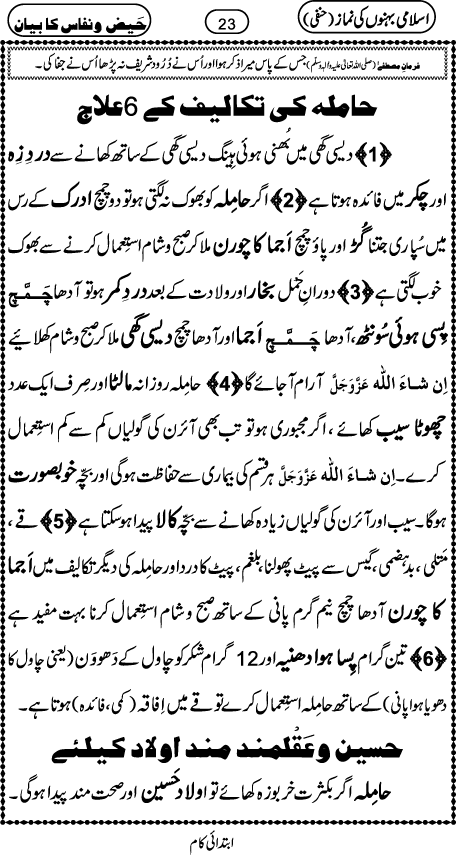 اسلامی بہنوں کی نماز (حنفی)
23
حیض و نفاس کا بیان
فرمانِ مصطفیٰ (صلی اللہ تعالیٰ علیہ والہ وسلم) جس کے پاس میرا ذکر ہوا اور اُس نے دُرُود شریف نہ پڑھا اُس نے جفا کی۔
حاملہ کی تکالیف کے 6 علاج
﴿1﴾ دیسی گھی میں بُھنی ہوئی ہِینگ دیسی گھی کے ساتھ کھانے سے دردِ زِہ
اور چکر میں فائدہ ہوتا ہے ﴿2﴾ اگر حامِلہ کو بھوک نہ لگتی ہو تو دو چمچ ادرک کے رس
میں سُپاری جتنا گُڑ اور پاؤ چمچ اَجما کا چورن ملا کر صبح و شام استِعمال کرنے سے بھوک
خوب لگتی ہے ﴿3﴾ دورانِ حَمل بخار اور ولادت کے بعد دردِ کمر ہو تو آدھا چَمَّچ
پِسی ہوئی سُونٹھ، آدھا چَمَّچ اَجما اور آدھا چمچ دیسی گھی ملا کر صبح و شام کھلائیے
اِن شاءَ اللہ عَزَّوَجَلَّ آرام آ جائے گا ﴿4﴾ حامِلہ روزانہ مالٹا اور صِرف ایک عدد
چھوٹا سیب کھائے، اگر مجبوری ہو تو تب بھی آئرن کی گولیاں کم سے کم استِعمال
کرے۔ اِن شاءَ اللہ عَزَّوَجَلَّ ہر قسم کی بیماری سے حفاظت ہوگی اور بچّہ خوبصورت
ہوگا۔ سیب اور آئرن کی گولیاں زیادہ کھانے سے بچّہ کالا پیدا ہوسکتا ہے ﴿5﴾ قے،
مَتلی، بدہضمی، گیس سے پیٹ پھولنا، بلغم، پیٹ کا درد اور حامِلہ کی دیگر تکالیف میں اَجما
کا چورن آدھا چمچ نیم گرم پانی کے ساتھ صبح و شام استِعمال کرنا بہت مفید ہے
﴿6﴾ تین گرام پِسا ہوا دھنیہ اور 12 گرام شکر کو چاول کے دَھووَن (یعنی چاول کا
دھویا ہوا پانی) کے ساتھ حامِلہ استِعمال کرے تو قے میں اِفاقہ (کمی، فائدہ) ہوتا ہے۔
حسین و عَقْلمند مند اولاد کیلئے
حامِلہ اگر بکثرت خربوزہ کھائے تو اولاد حَسین اور صحت مند پیدا ہوگی۔
ابتدائی کام